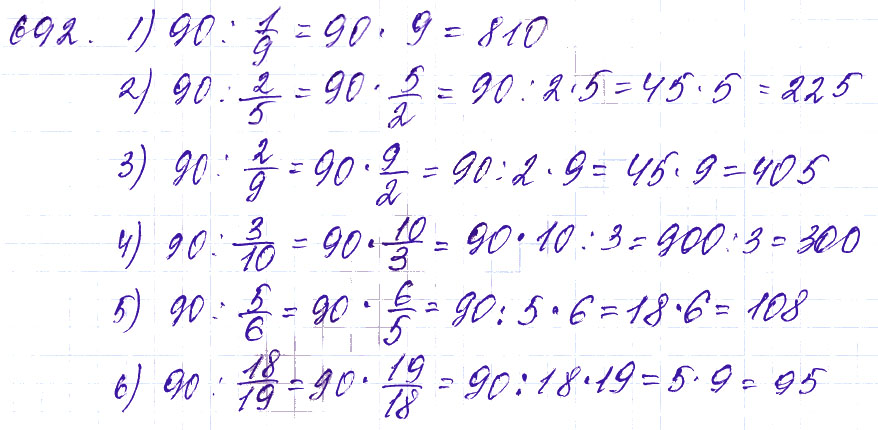 692. 1) 90 : 1/9 = 90 · 9 = 810
2) 90 : 2/5 = 90 · 5/2 = 90 : 2 · 5 = 45 · 5 = 225
3) 90 : 2/9 = 90 · 9/2 = 90 : 2 · 9 = 45 · 9 = 405
4) 90 : 3/10 = 90 · 10/3 = 90 · 10 : 3 = 900 : 3 = 300
5) 90 : 5/6 = 90 · 6/5 = 90 : 5 · 6 = 18 · 6 = 108
6) 90 : 18/19 = 90 · 19/18 = 90 : 18 · 19 = 5 · 9 = 95